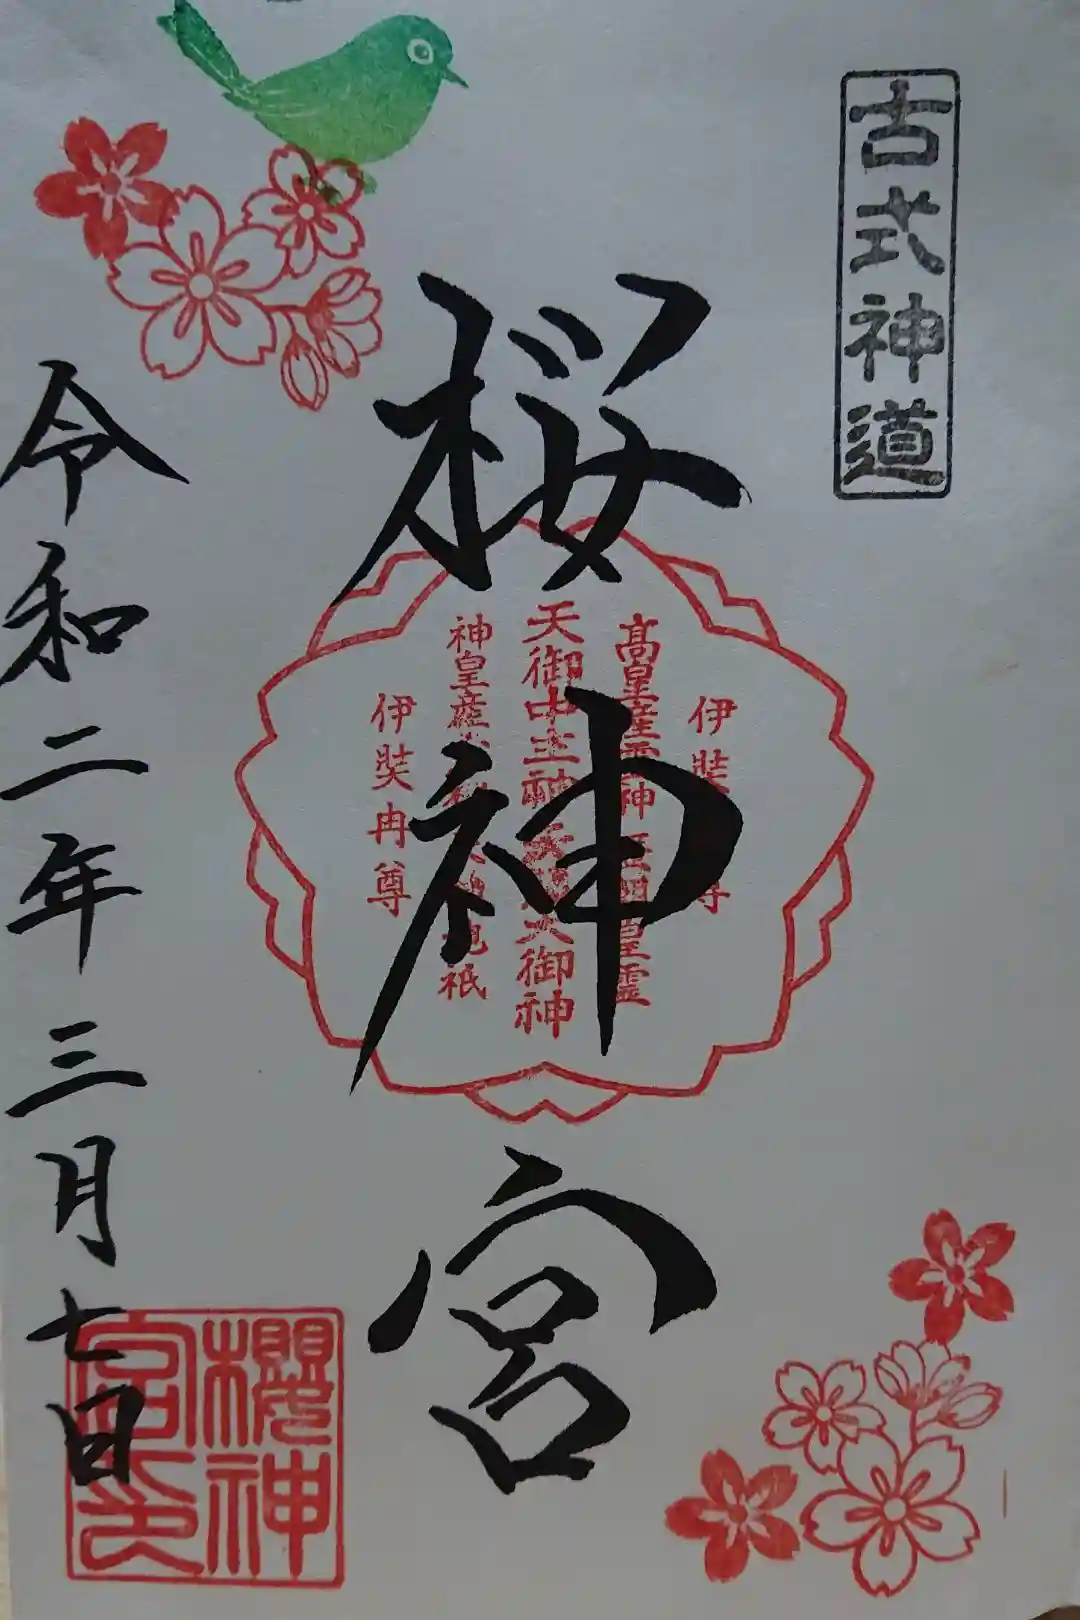 古式神道
桜神宮
伊弉
尊
高皇産霊神
皇霊
天御中主神
大御神
神皇産
祇
伊弉冉尊
令和二年三月七日
櫻神
宮印